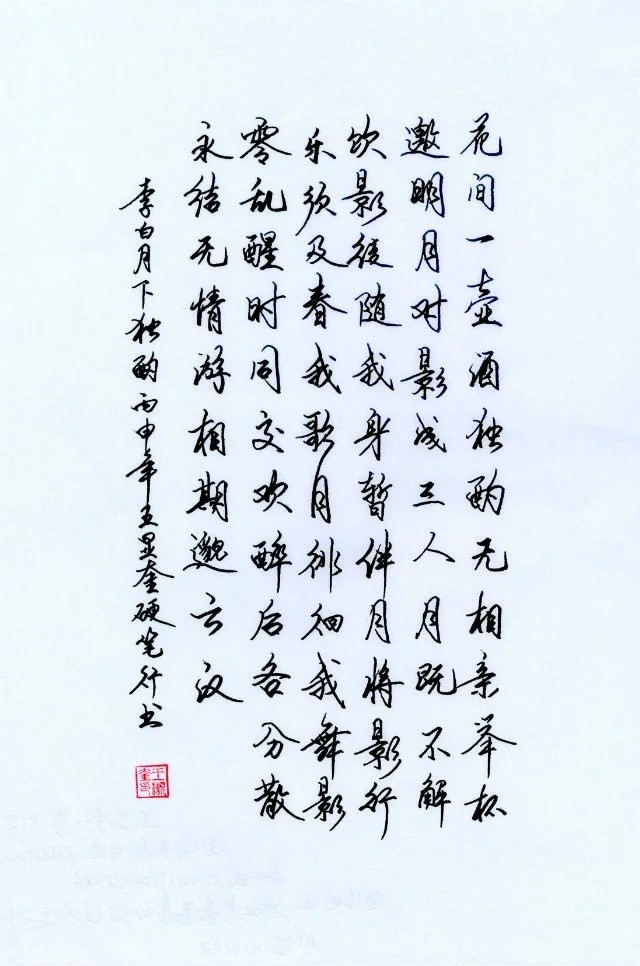 花间一壶酒独酌无相亲举杯
邀明月对影成三人月既不解
饮影徒随我身暂伴月将影行
乐须及春我歌月徘徊我舞影
零乱醒时同交欢醉后各分散
永结无情游相期邈云汉
李白月下独酌丙申年王显奎硬笔行书